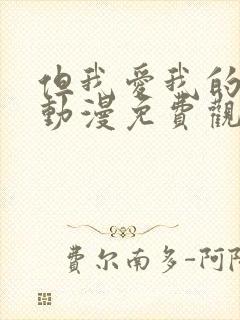 但我愛我的
動漫免費觀
費尔南多-阿陀